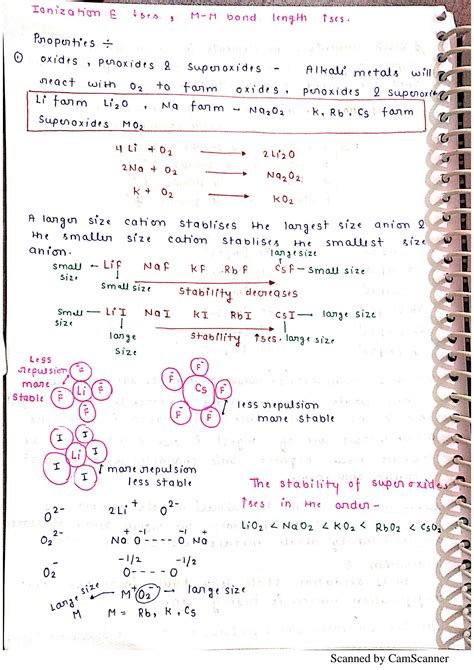 Ionization E ↓ses, M-M bond length ↑ses.
Properties ÷
① oxides, peroxides & Superoxides - Alkali metals will
react with O2 to farm oxides, peroxides & superoxides
Li farm Li2O, Na farm - Na2O2 K, Rb, Cs farm
Superoxides MO2
4Li + O2 → 2Li2O
2Na + O2 → Na2O2
K + O2 → KO2
A larger size cation stablises the largest size anion &
the smaller size cation stablises the smallest size
anion.
large size
small size ← LiF NaF KF RbF CsF - small size
small size
stability decreases
Small size ← LiI NaI KI RbI CsI → large size
large size
stability ↑ses.
large size
Less repulsion more stable
F F F F Li
F F F F F Cs
less repulsion more stable
I I I I I Li
more repulsion less stable
The stability of superoxides
↑ses in the order-
LiO2 < NaO2 < KO2 < RbO2 < CsO2
O2- 2Li+ O2-
O2 2- Na+ O-1 ---- O-1 Na+
O2- O-1/2 ---- O-1/2
Large size ← M+ O2- → large size
M M = Rb, K, Cs
Scanned by CamScanner